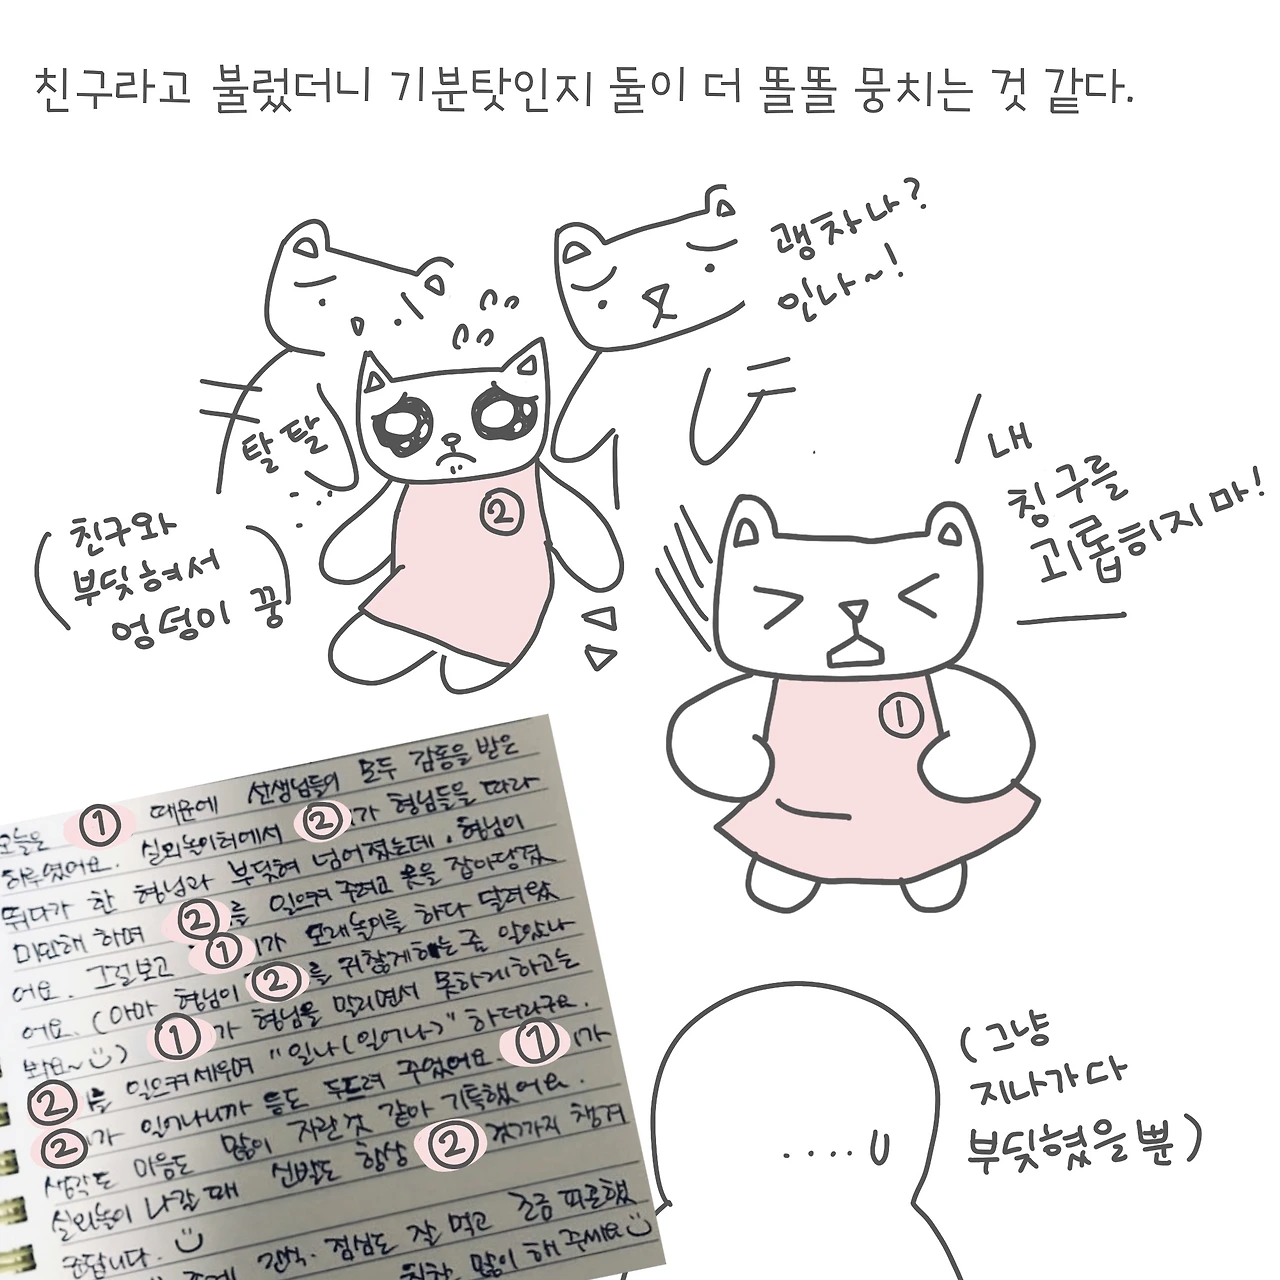 친구라고 불렀더니 기분탓인지 둘이 더 똘똘 뭉치는 것 같다.
괜차나?
인나~!
탈탈
(친구와
부딪혀서
엉덩이 꿍)
내
칭구를
괴롭히지 마!
②
①
오늘은 ① 때문에 선생님들이 모두 감동을 받은
하루였어요. 실외놀이터에서 ②가 형님들을 따라
뛰다가 한 형님과 부딪혀 넘어졌는데, 형님이
미안해 하며 ②를 일으켜 주려고 옷을 잡아당겼
어요. 그걸보고 ①가 모래놀이를 하다 달려왔
어요. (아마 형님이 ②를 귀찮게하는줄 알았나
봐요~) ①가 형님을 말리면서 못하게하고는
②를 일으켜세우며 "일나(일어나)" 하더라구요.
②가 일어나니까 등도 두드려 주었어요. ①가
생각도 마음도 많이 자란것 같아 기특했어요.
실외놀이 나갈때 신발도 항상 ②것까지 챙겨
준답니다.
간식, 점심도 잘 먹고 조금 피곤했
많이 해주세요
(그냥
지나가다
부딪혔을 뿐)
....